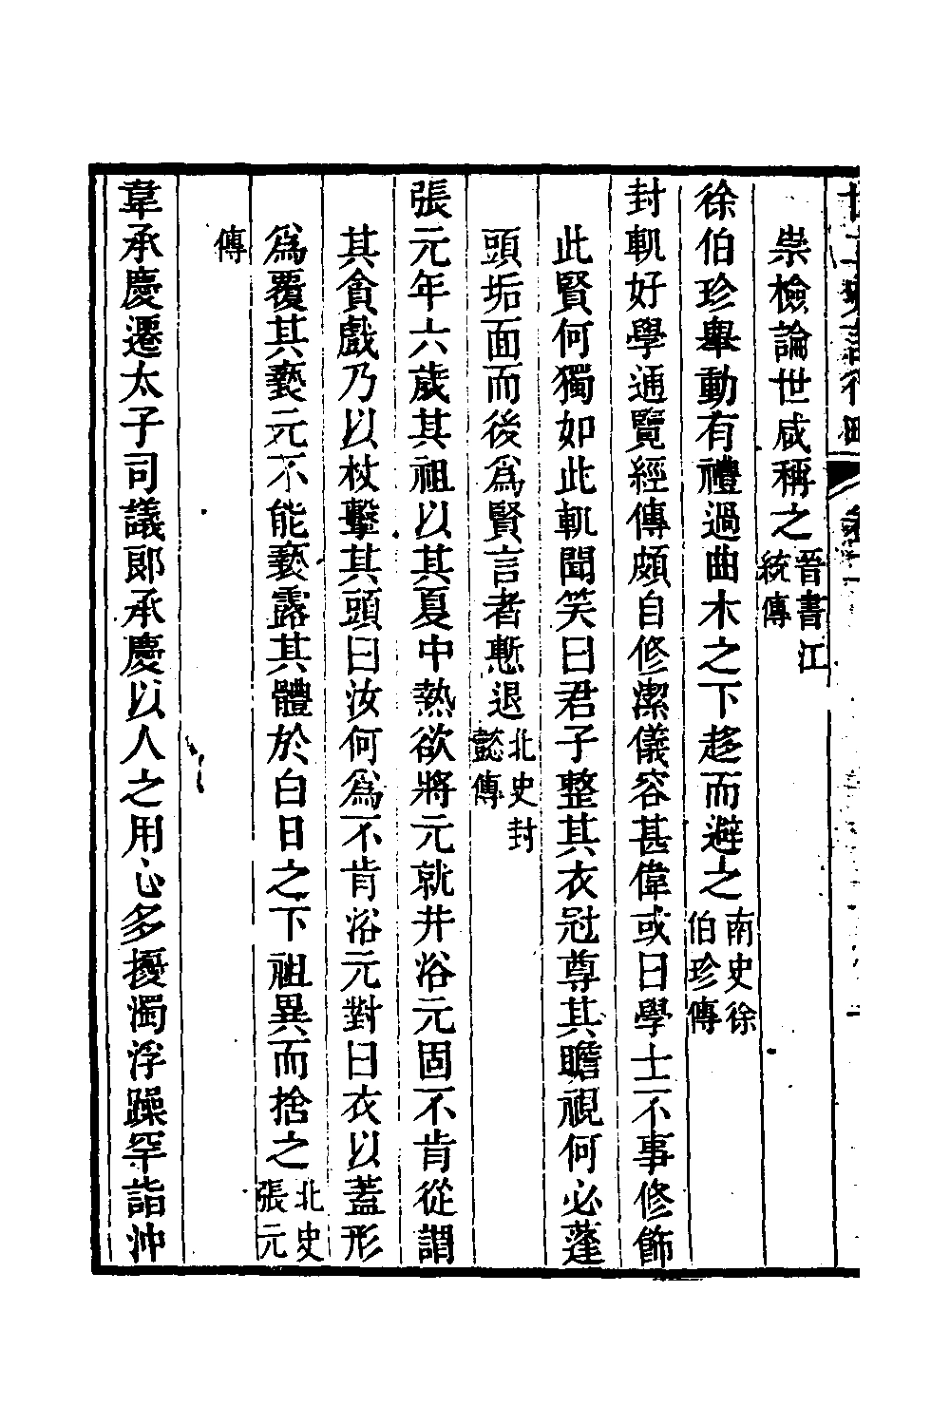 崇檢論世咸稱之晉書江統傳
徐伯珍舉動有禮過曲木之下趍而避之南史徐伯珍傳
封軌好學通覽經傳頗自修潔儀容甚偉或曰學士不事修飾
此賢何獨如此軌聞笑曰君子整其衣冠尊其瞻視何必蓬
頭垢面而後爲賢言者慙退北史封懿傳
張元年六歲其祖以其夏中熱欲將元就井浴元固不肯從謂
其貪戲乃以杖擊其頭曰汝何爲不肯浴元對曰衣以蓋形
爲覆其褻元不能褻露其體於白日之下祖異而捨之北史張元
傳
韋承慶遷太子司議郎承慶以人之用心多擾濁浮躁罕詣沖